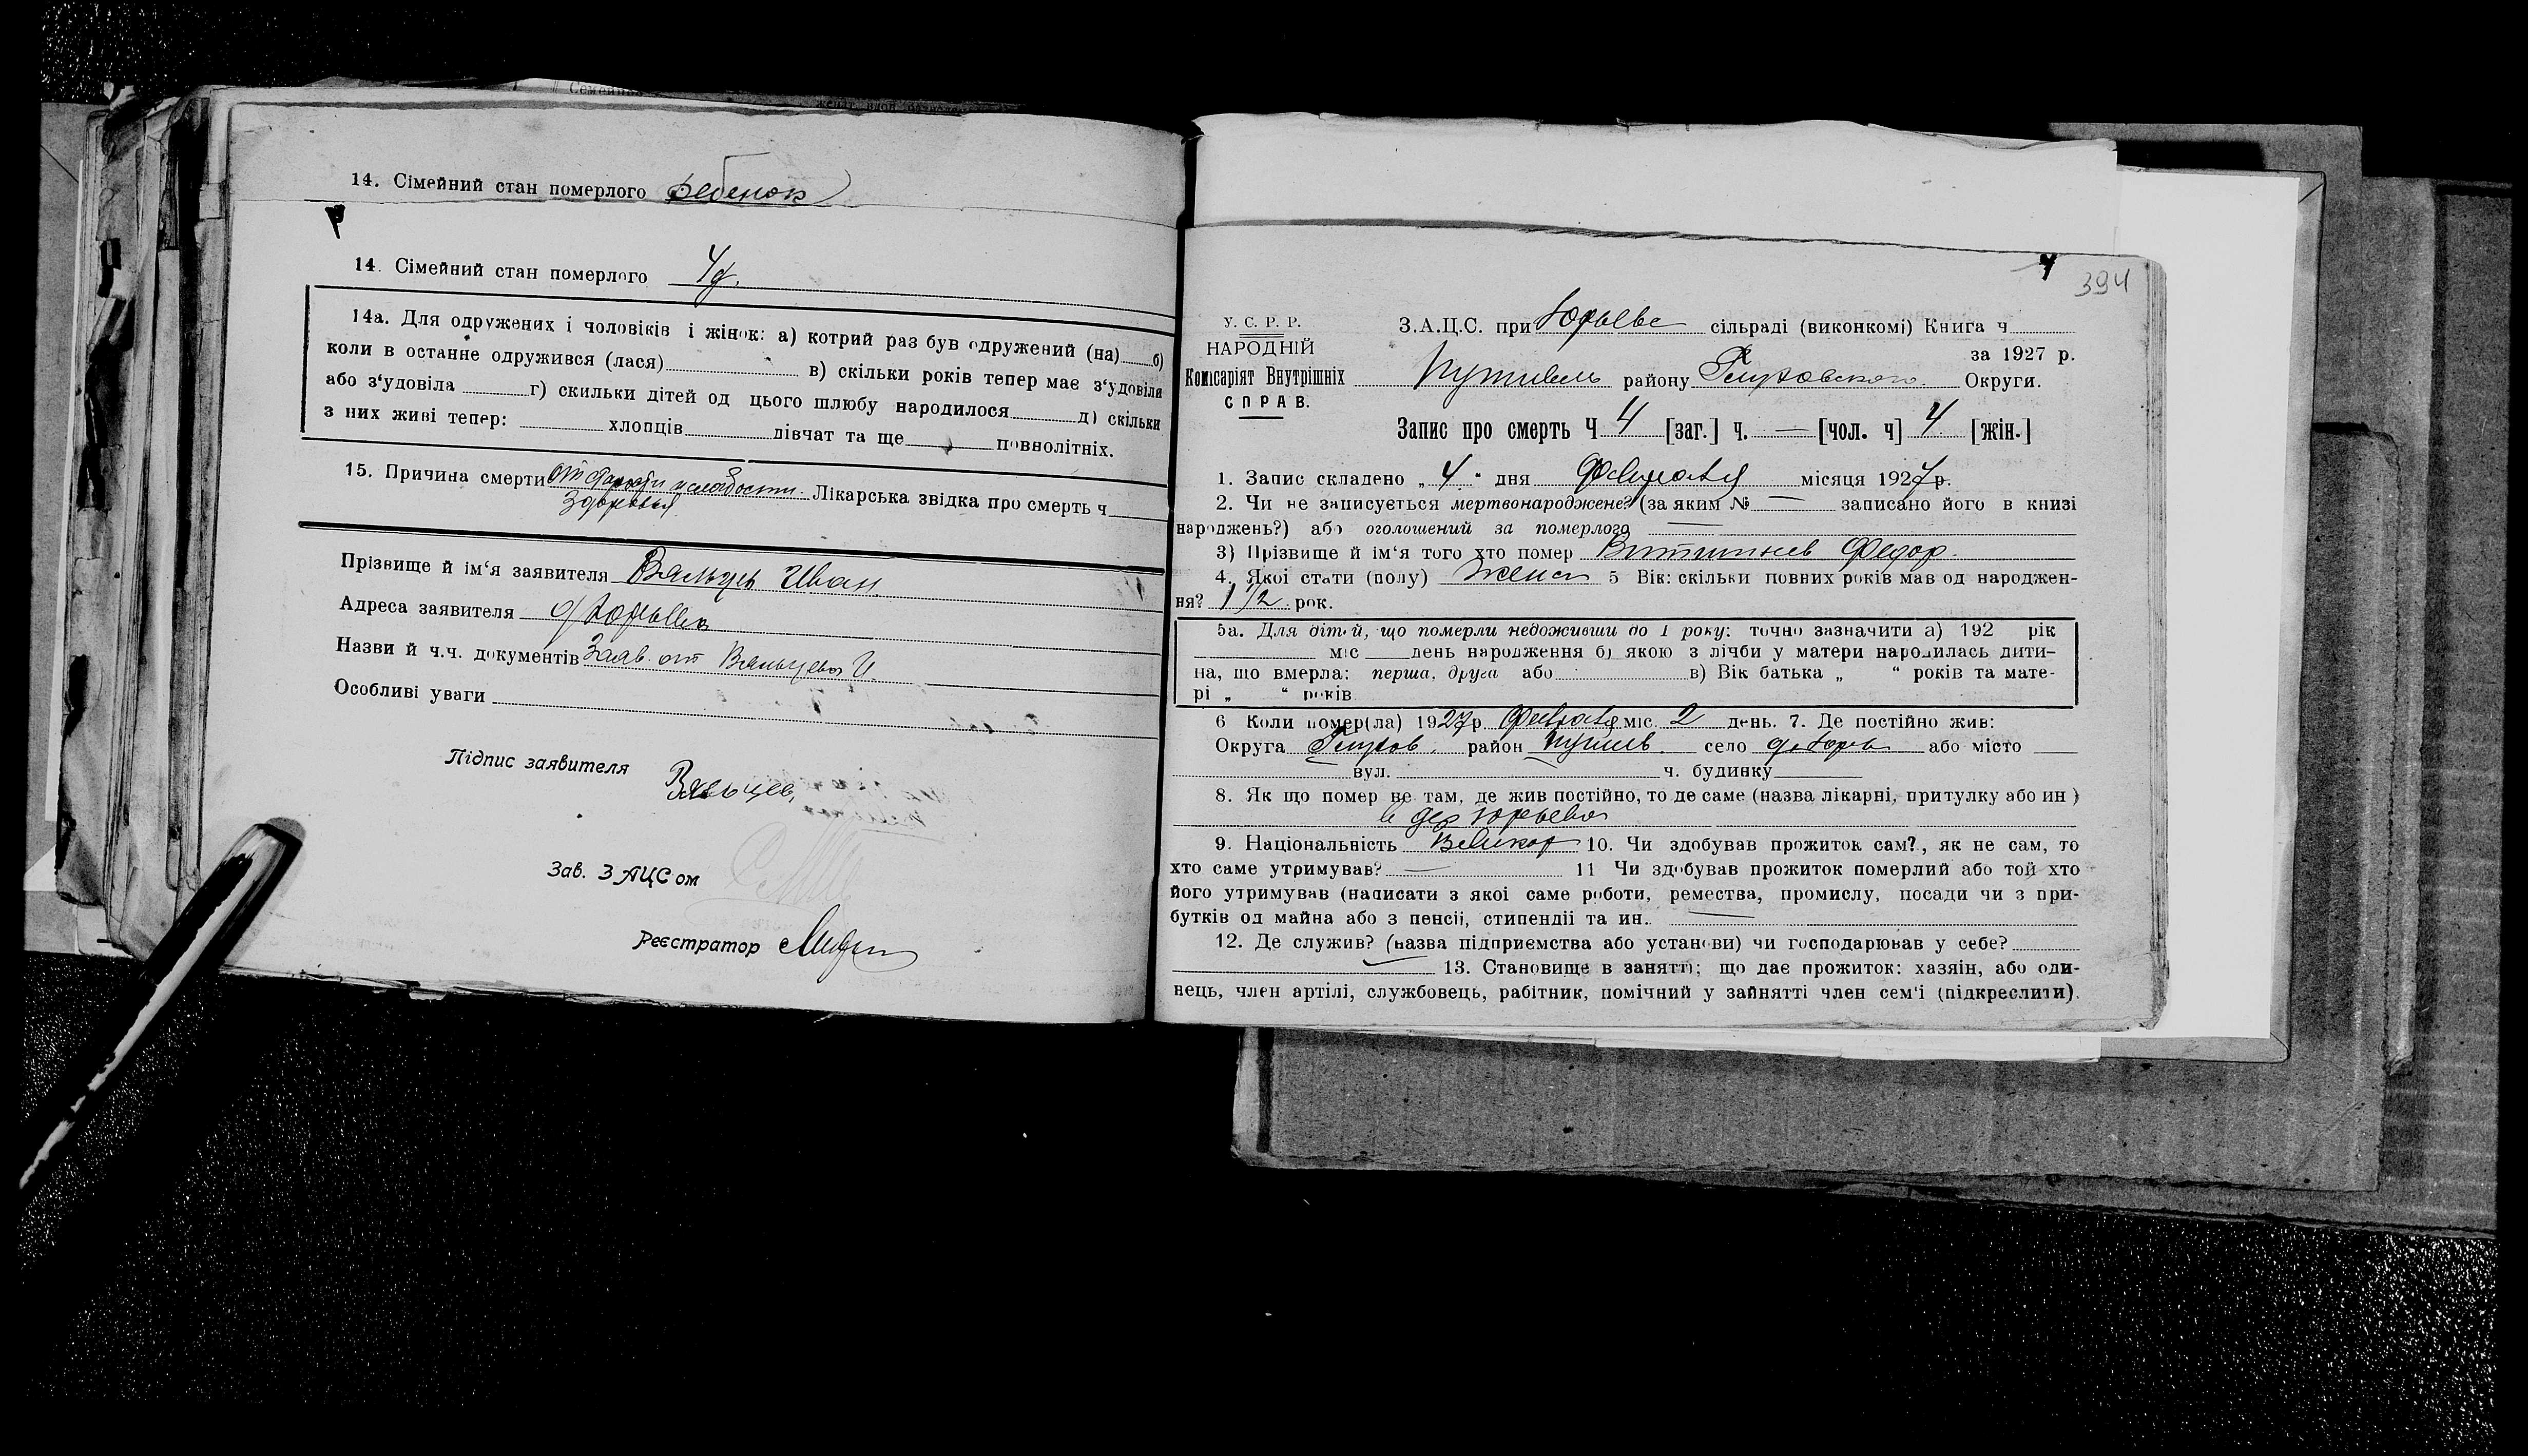 14. Сімейний стан померлого ребенок
14. Сімейний стан померлого
14а. Для одружених і чоловіків і жінок: а) котрий раз був одружений (на) б)
коли в останнє одружився (лася) в) скільки років тепер має з‘удовіли
або з‘удовіла г) скильки дітей од цього шлюбу народилося д) скільки
з них живі тепер: хлопців дівчат та ще повнолітніх.
15. Причина смерти от старости и слабости Лікарська звідка про смерть ч
здоровья
Прізвище й ім‘я заявителя Вяльцев Иван
Адреса заявителя
Назви й ч.ч. документів Заяв. от Вяльцева И.
Особливі уваги
Підпис заявителя Вяльцев
Зав. ЗАЦСом
Реєстратор
4 394
У. С. Р. Р.
НАРОДНІЙ
Комісаріят Внутрішніх
СПРАВ.
З.А.Ц.С. при Юрьеве сільраді (виконкомі) Книга ч
за 1927 р.
Путивель району Глуховского Округи.
Запис про смерть Ч 4 [заг.] ч. — [чол. ч] 4 [жін.]
1. Запис складено „ 4 “ дня Февраля місяця 1927 р.
2. Чи не записується мертвонароджене? (за яким № — записано його в книзі
народжень?) або оголошений за померлого —
3) Прізвище й ім‘я того хто помер Федор
4. Якої стати (полу) Женс 5 Вік: скільки повних років мав од народжен-
ня? рок.
5а. Для дітей, що померли недоживши до 1 року: точно зазначити а) 192 рік
міс день народження б) якою з лічби у матери народилась дити-
на, що вмерла: перша, друга або в) Вік батька „ “ років та мате-
рі „ “ років
6 Коли помер(ла) 1927 р. Февраля міс. 2 день. 7. Де постійно жив:
Округа Глухов. район Путив. село д. Юрь або місто
вул. ч. будинку
8. Як що помер не там, де жив постійно, то де саме (назва лікарні, притулку або ин)
в дер Юрьево
9. Національність Великор 10. Чи здобував прожиток сам?, як не сам, то
хто саме утримував? — 11 Чи здобував прожиток померлий або той хто
його утримував (написати з якоі саме роботи, ремества, промислу, посади чи з при-
бутків од майна або з пенсіі, стипендіі та ин. —
12. Де служив? (назва підприемства або установи) чи господарював у себе?
13. Становище в занятті; що дає прожиток: хазяін, або оди-
нець, член артілі, службовець, рабітник, помічний у зайнятті член сем‘і (підкреслити).